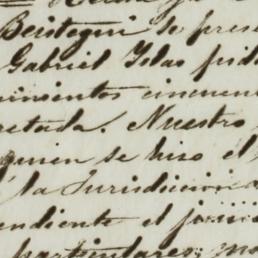 Beistegui se pres
Gabriel Islas pid
inientos cincuen
retada. Nuestro
quien se hizo el
la Jurisdiccion
endiente el
particulares, m